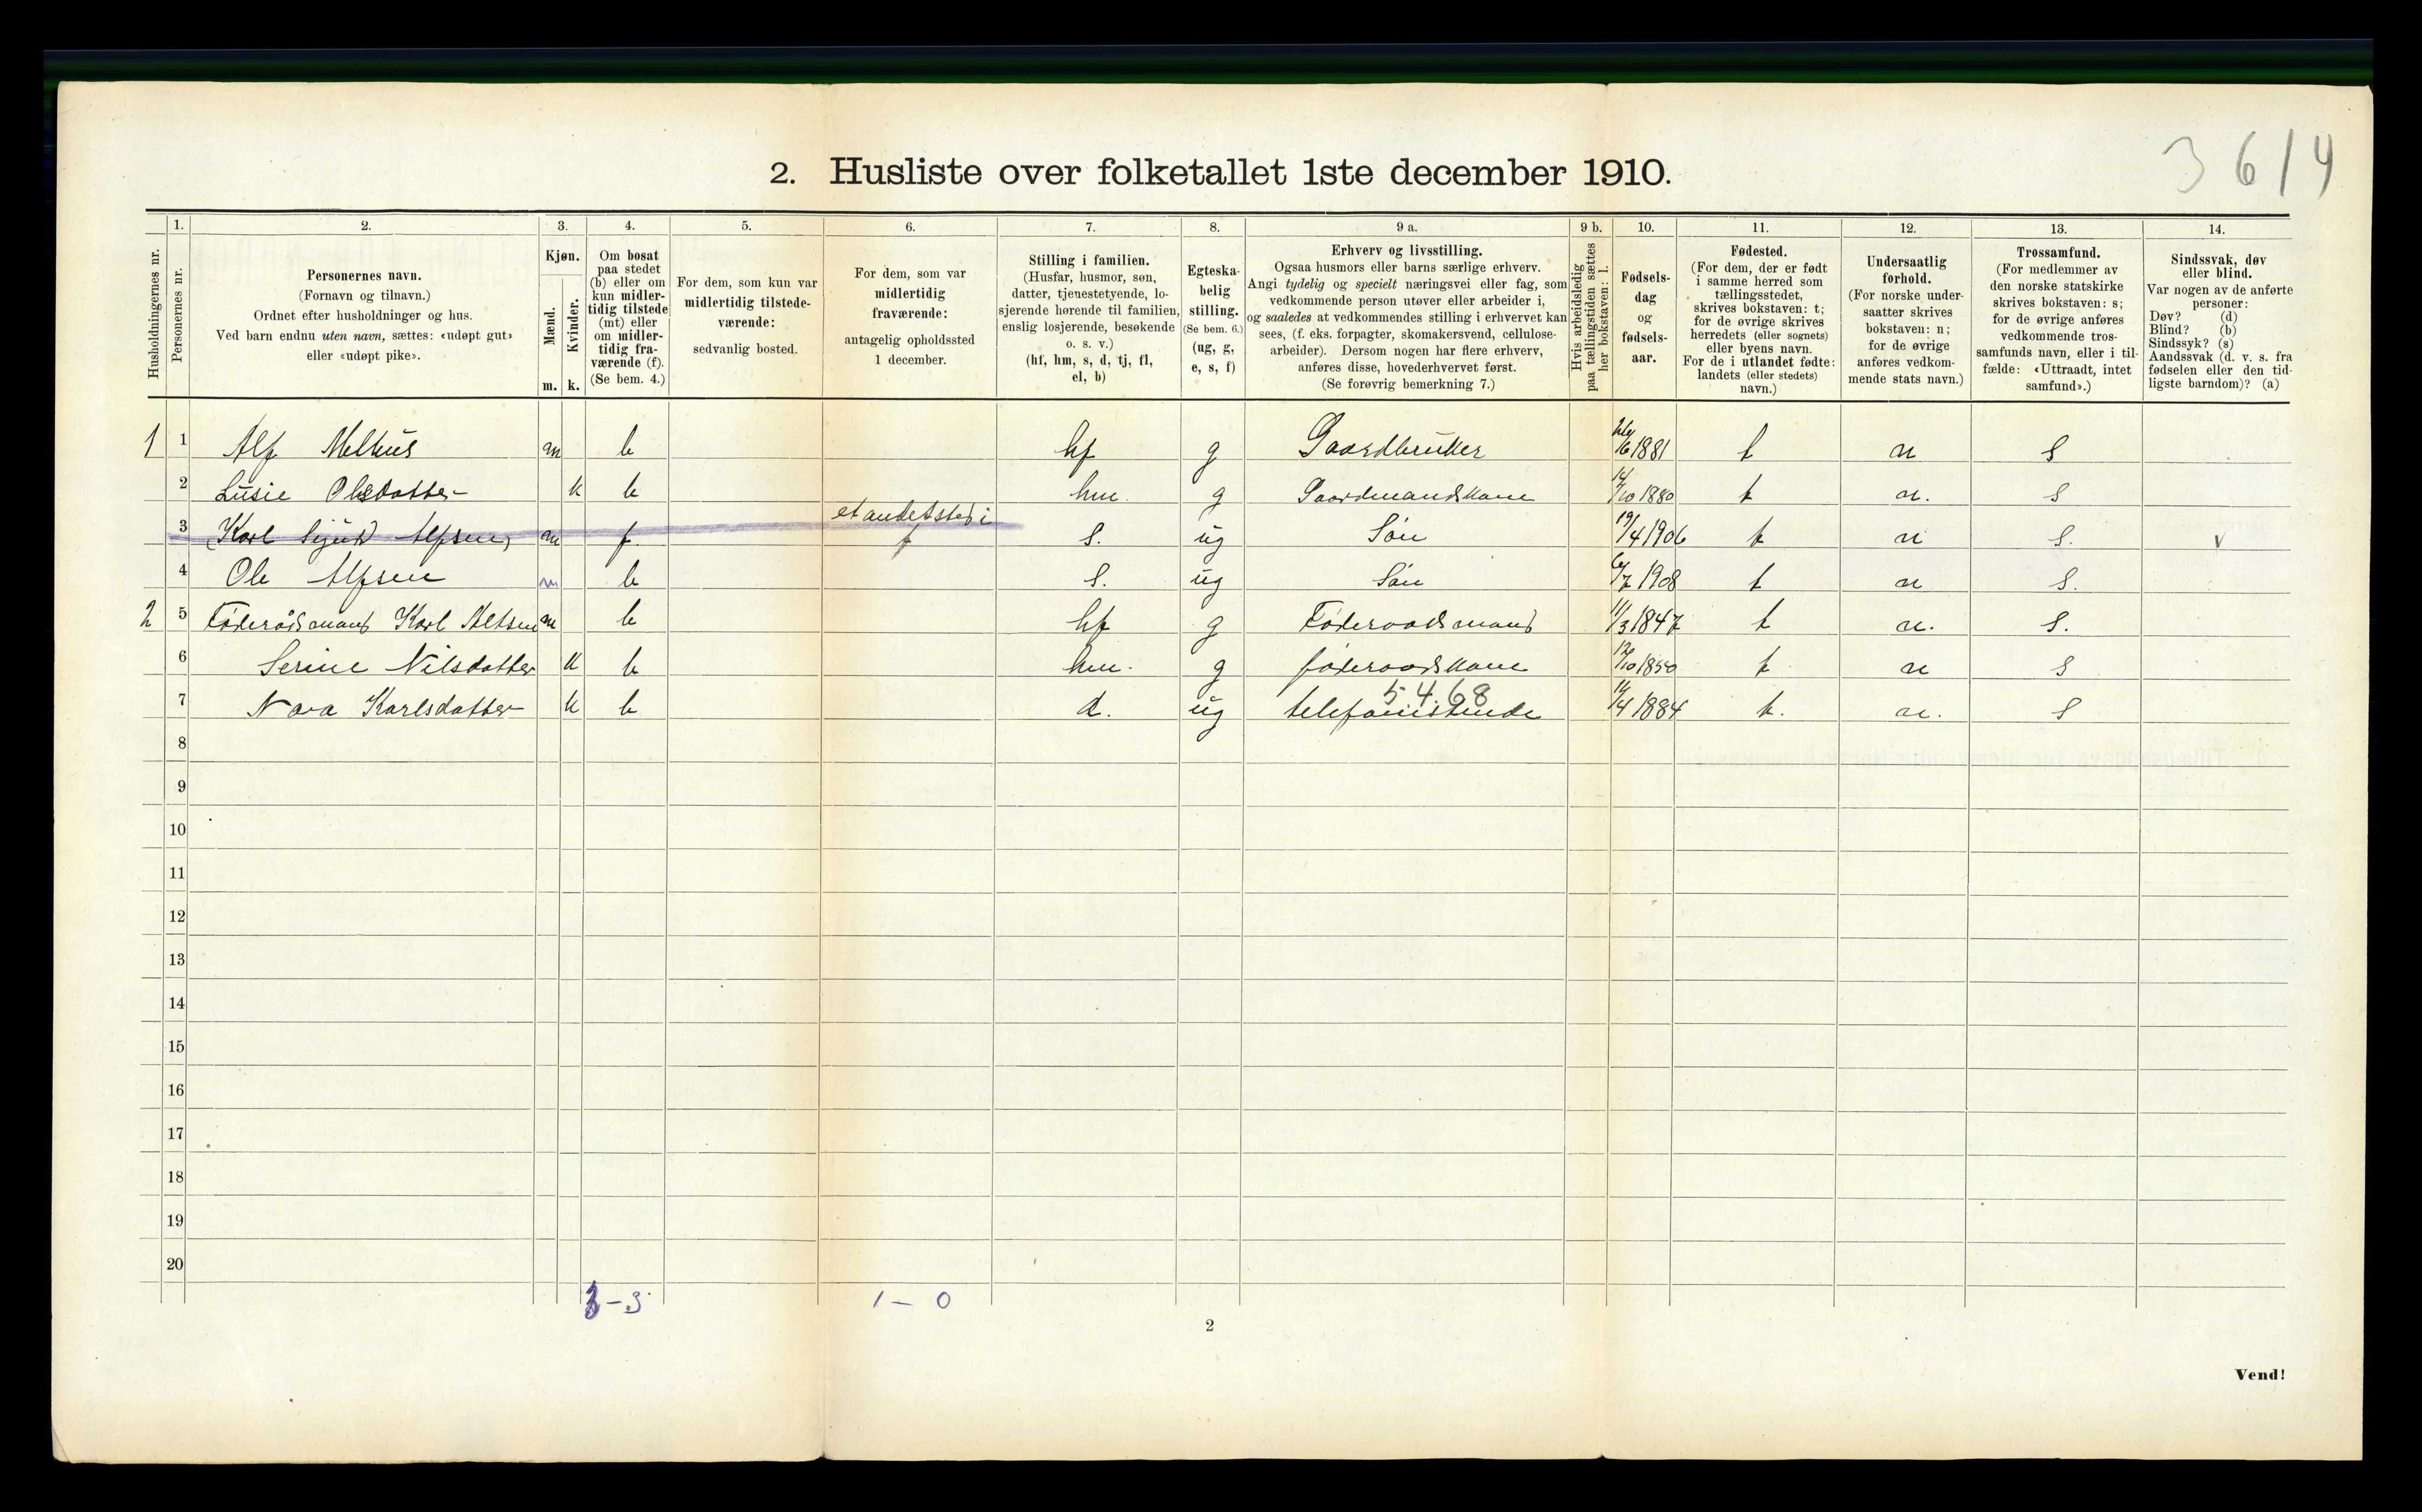 3 6 14
2. Husliste over folketallet 1ste december 1910.
1. 2. 3. 4. 5. 6. 7. 8. 9 a. 9 b. 10. 11. 12. 13. 14.
Husholdningernes nr.
Personernes nr.
Personernes navn.
(Fornavn og tilnavn.)
Ordnet efter husholdninger og hus.
Ved barn endnu uten navn, sættes: «udøpt gut»
eller «udøpt pike».
Kjøn.
Mænd.
Kvinder.
m. k.
Om bosat
paa stedet
(b) eller om
kun midler-
tidig tilstede
(mt) eller
om midler-
tidig fra-
værende (f).
(Se bem. 4.)
For dem, som kun var
midlertidig tilstede-
værende:
sedvanlig bosted.
For dem, som var
midlertidig
fraværende:
antagelig opholdssted
1 december.
Stilling i familien.
(Husfar, husmor, søn,
datter, tjenestetyende, lo-
sjerende hørende til familien,
enslig losjerende, besøkende
o. s. v.)
(hf, hm, s, d, tj, fl,
el, b)
Egteska-
belig
stilling.
(Se bem. 6.)
(ug, g,
e, s, f)
Erhverv og livsstilling.
Ogsaa husmors eller barns særlige erhverv.
Angi tydelig og specielt næringsvei eller fag, som
vedkommende person utøver eller arbeider i,
og saaledes at vedkommendes stilling i erhvervet kan
sees, (f. eks. forpagter, skomakersvend, cellulose-
arbeider). Dersom nogen har flere erhverv,
anføres disse, hovederhvervet først.
(Se forøvrig bemerkning 7.)
Hvis arbeidsledig
paa tællingstiden sættes
her bokstaven: l.
Fødsels-
dag
og
fødsels-
aar.
Fødested.
(For dem, der er født
i samme herred som
tællingsstedet,
skrives bokstaven: t;
for de øvrige skrives
herredets (eller sognets)
eller byens navn.
For de i utlandet fødte:
landets (eller stedets)
navn.)
Undersaatlig
forhold.
(For norske under-
saatter skrives
bokstaven: n;
for de øvrige
anføres vedkom-
mende stats navn.)
Trossamfund.
(For medlemmer av
den norske statskirke
skrives bokstaven: s;
for de øvrige anføres
vedkommende tros-
samfunds navn, eller i til-
fælde: «Uttraadt, intet
samfund».)
Sindssvak, døv
eller blind.
Var nogen av de anførte
personer:
Døv? (d)
Blind? (b)
Sindssyk? (s)
Aandssvak (d. v. s. fra
fødselen eller den tid-
ligste barndom)? (a)
1 1 Alf Melhus m b hf g Gaardbruker 1881 t n S
2 Lusie Olsdatter k b hm. g Gaardmandskone 14/10 1880 t n. S
3 (Karl Sigurd Alfsen) m f. et andet sted i t S. ug Sön 19/4 1906 t n S. v
4 Ole Alfsen m b S. ug Sön 6/7 1908 t n S.
2 5 Föderådsmand Karl Altsen m b hf g Föderaadsmand 11/3 1847 t n. S.
6 Serine Nilsdatter k b hm. g föderaadskone 12/10 1850 t n S
7 Nora Karlsdatter k b d. ug telefonistinde 5.4.68 14/4 1884 t. n. S
8
9
10
11
12
13
14
15
16
17
18
19
20
3 – 3 1 – 0
2
Vend!